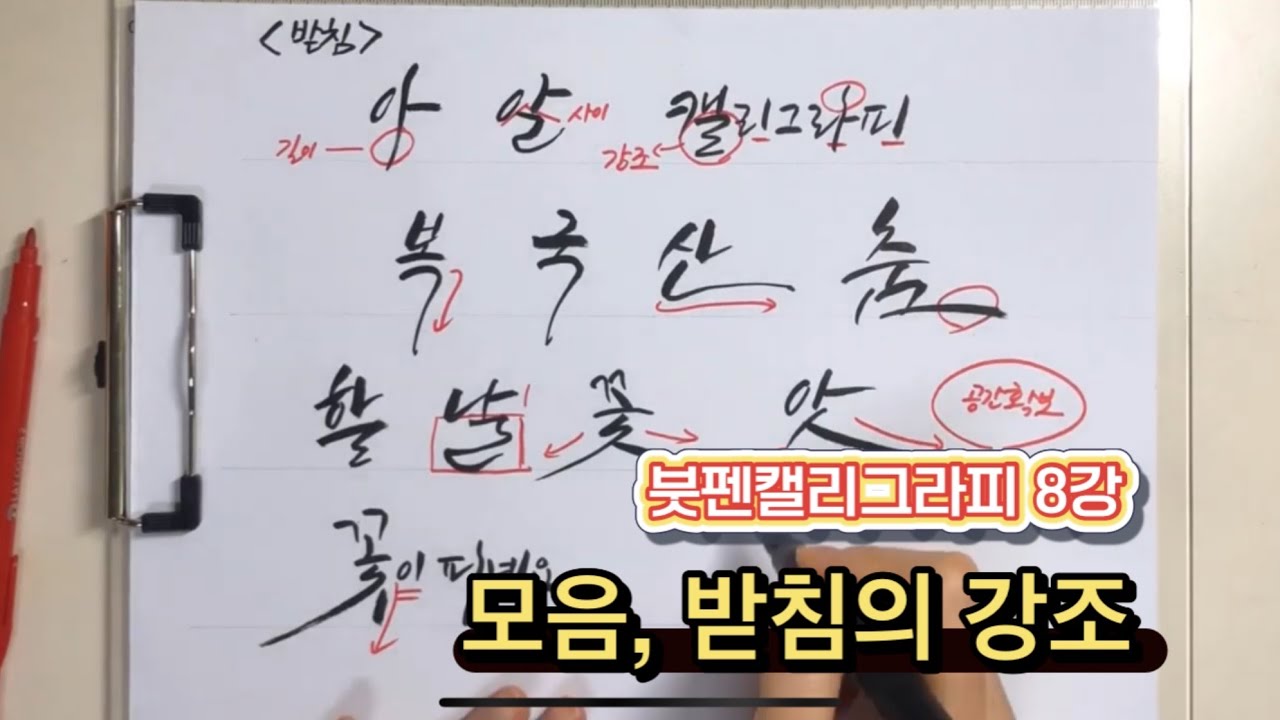 <받침>
아 알 캘리그라피
길이 사이 강조
복 국 산 춤
활 날 꽃 앗 공간확보
붓펜캘리그라피 8강
꽃이 피네요
모음, 받침의 강조